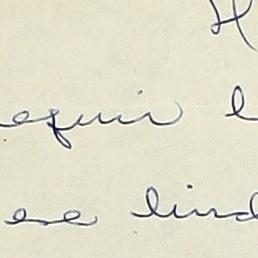 H
equir l
ese lind